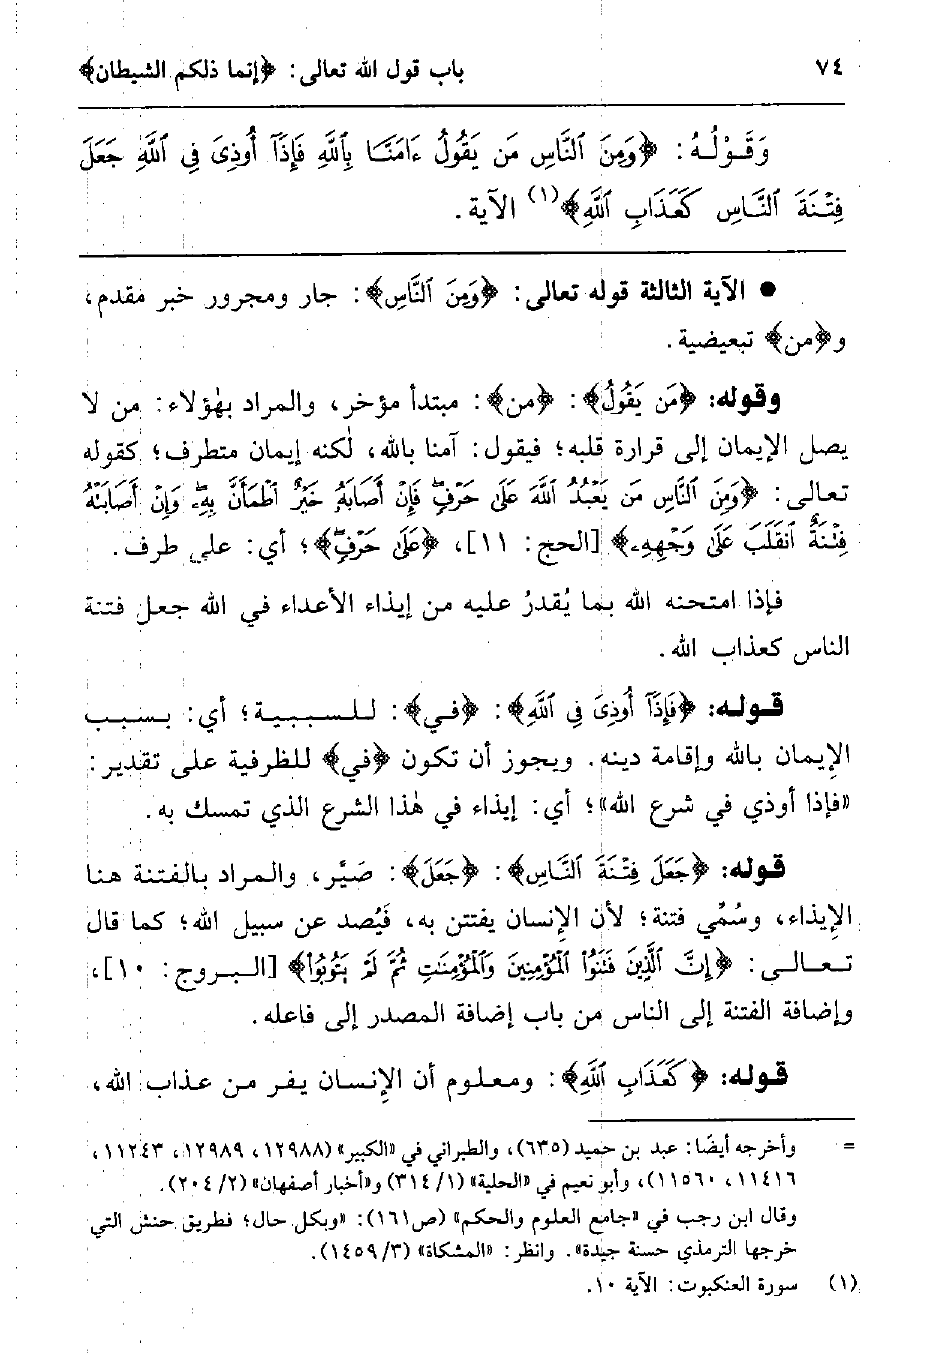 ٧٤ باب قول الله تعالى: ﴿إنما ذلكم الشيطان﴾
وَقَـوْلُـهُ: ﴿وَمِنَ ٱلنَّاسِ مَن يَقُولُ ءَامَنَّا بِٱللَّهِ فَإِذَآ أُوذِىَ فِى ٱللَّهِ جَعَلَ
فِتْنَةَ ٱلنَّاسِ كَعَذَابِ ٱللَّهِ﴾(١) الآية.
● الآية الثالثة قوله تعالى: ﴿وَمِنَ ٱلنَّاسِ﴾: جار ومجرور خبر مقدم،
و﴿من﴾ تبعيضية.
وقوله: ﴿مَن يَقُولُ﴾: ﴿من﴾: مبتدأ مؤخر، والمراد بهٰؤلاء: من لا
يصل الإيمان إلى قرارة قلبه؛ فيقول: آمنا بالله، لٰكنه إيمان متطرف؛ كقوله
تعالى: ﴿وَمِنَ ٱلنَّاسِ مَن يَعْبُدُ ٱللَّهَ عَلَىٰ حَرْفٍ فَإِنْ أَصَابَهُۥ خَيْرٌ ٱطْمَأَنَّ بِهِۦ وَإِنْ أَصَابَتْهُ
فِتْنَةٌ ٱنقَلَبَ عَلَىٰ وَجْهِهِۦ﴾ [الحج: ١١]، ﴿عَلَىٰ حَرْفٍ﴾؛ أي: على طرف.
فإذا امتحنه الله بما يُقدرُ عليه من إيذاء الأعداء في الله جعل فتنة
الناس كعذاب الله.
قوله: ﴿فَإِذَآ أُوذِىَ فِى ٱللَّهِ﴾: ﴿في﴾: للسببية؛ أي: بسبب
الإيمان بالله وإقامة دينه. ويجوز أن تكون ﴿في﴾ للظرفية على تقدير:
«فإذا أوذي في شرع الله»؛ أي: إيذاء في هٰذا الشرع الذي تمسك به.
قوله: ﴿جَعَلَ فِتْنَةَ ٱلنَّاسِ﴾: ﴿جَعَلَ﴾: صَيَّر، والمراد بالفتنة هنا
الإيذاء، وسُمِّي فتنة؛ لأن الإنسان يفتتن به، فَيُصد عن سبيل الله؛ كما قال
تعالى: ﴿إِنَّ ٱلَّذِينَ فَتَنُوا۟ ٱلْمُؤْمِنِينَ وَٱلْمُؤْمِنَٰتِ ثُمَّ لَمْ يَتُوبُوا۟﴾ [البروج: ١٠]،
وإضافة الفتنة إلى الناس من باب إضافة المصدر إلى فاعله.
قوله: ﴿كَعَذَابِ ٱللَّهِ﴾: ومعلوم أن الإنسان يفر من عذاب الله،
= وأخرجه أيضًا: عبد بن حميد (٦٣٥)، والطبراني في «الكبير» (١٢٩٨٨، ١٢٩٨٩، ١١٢٤٣،
١١٤١٦، ١١٥٦٠)، وأبو نعيم في «الحلية» (١/ ٣١٤) و«أخبار أصفهان» (٢/ ٢٠٤).
وقال ابن رجب في «جامع العلوم والحكم» (ص١٦١): «وبكل حال؛ فطريق حنش التي
خرجها الترمذي حسنة جيدة». وانظر: «المشكاة» (٣/ ١٤٥٩).
(١) سورة العنكبوت: الآية ١٠.